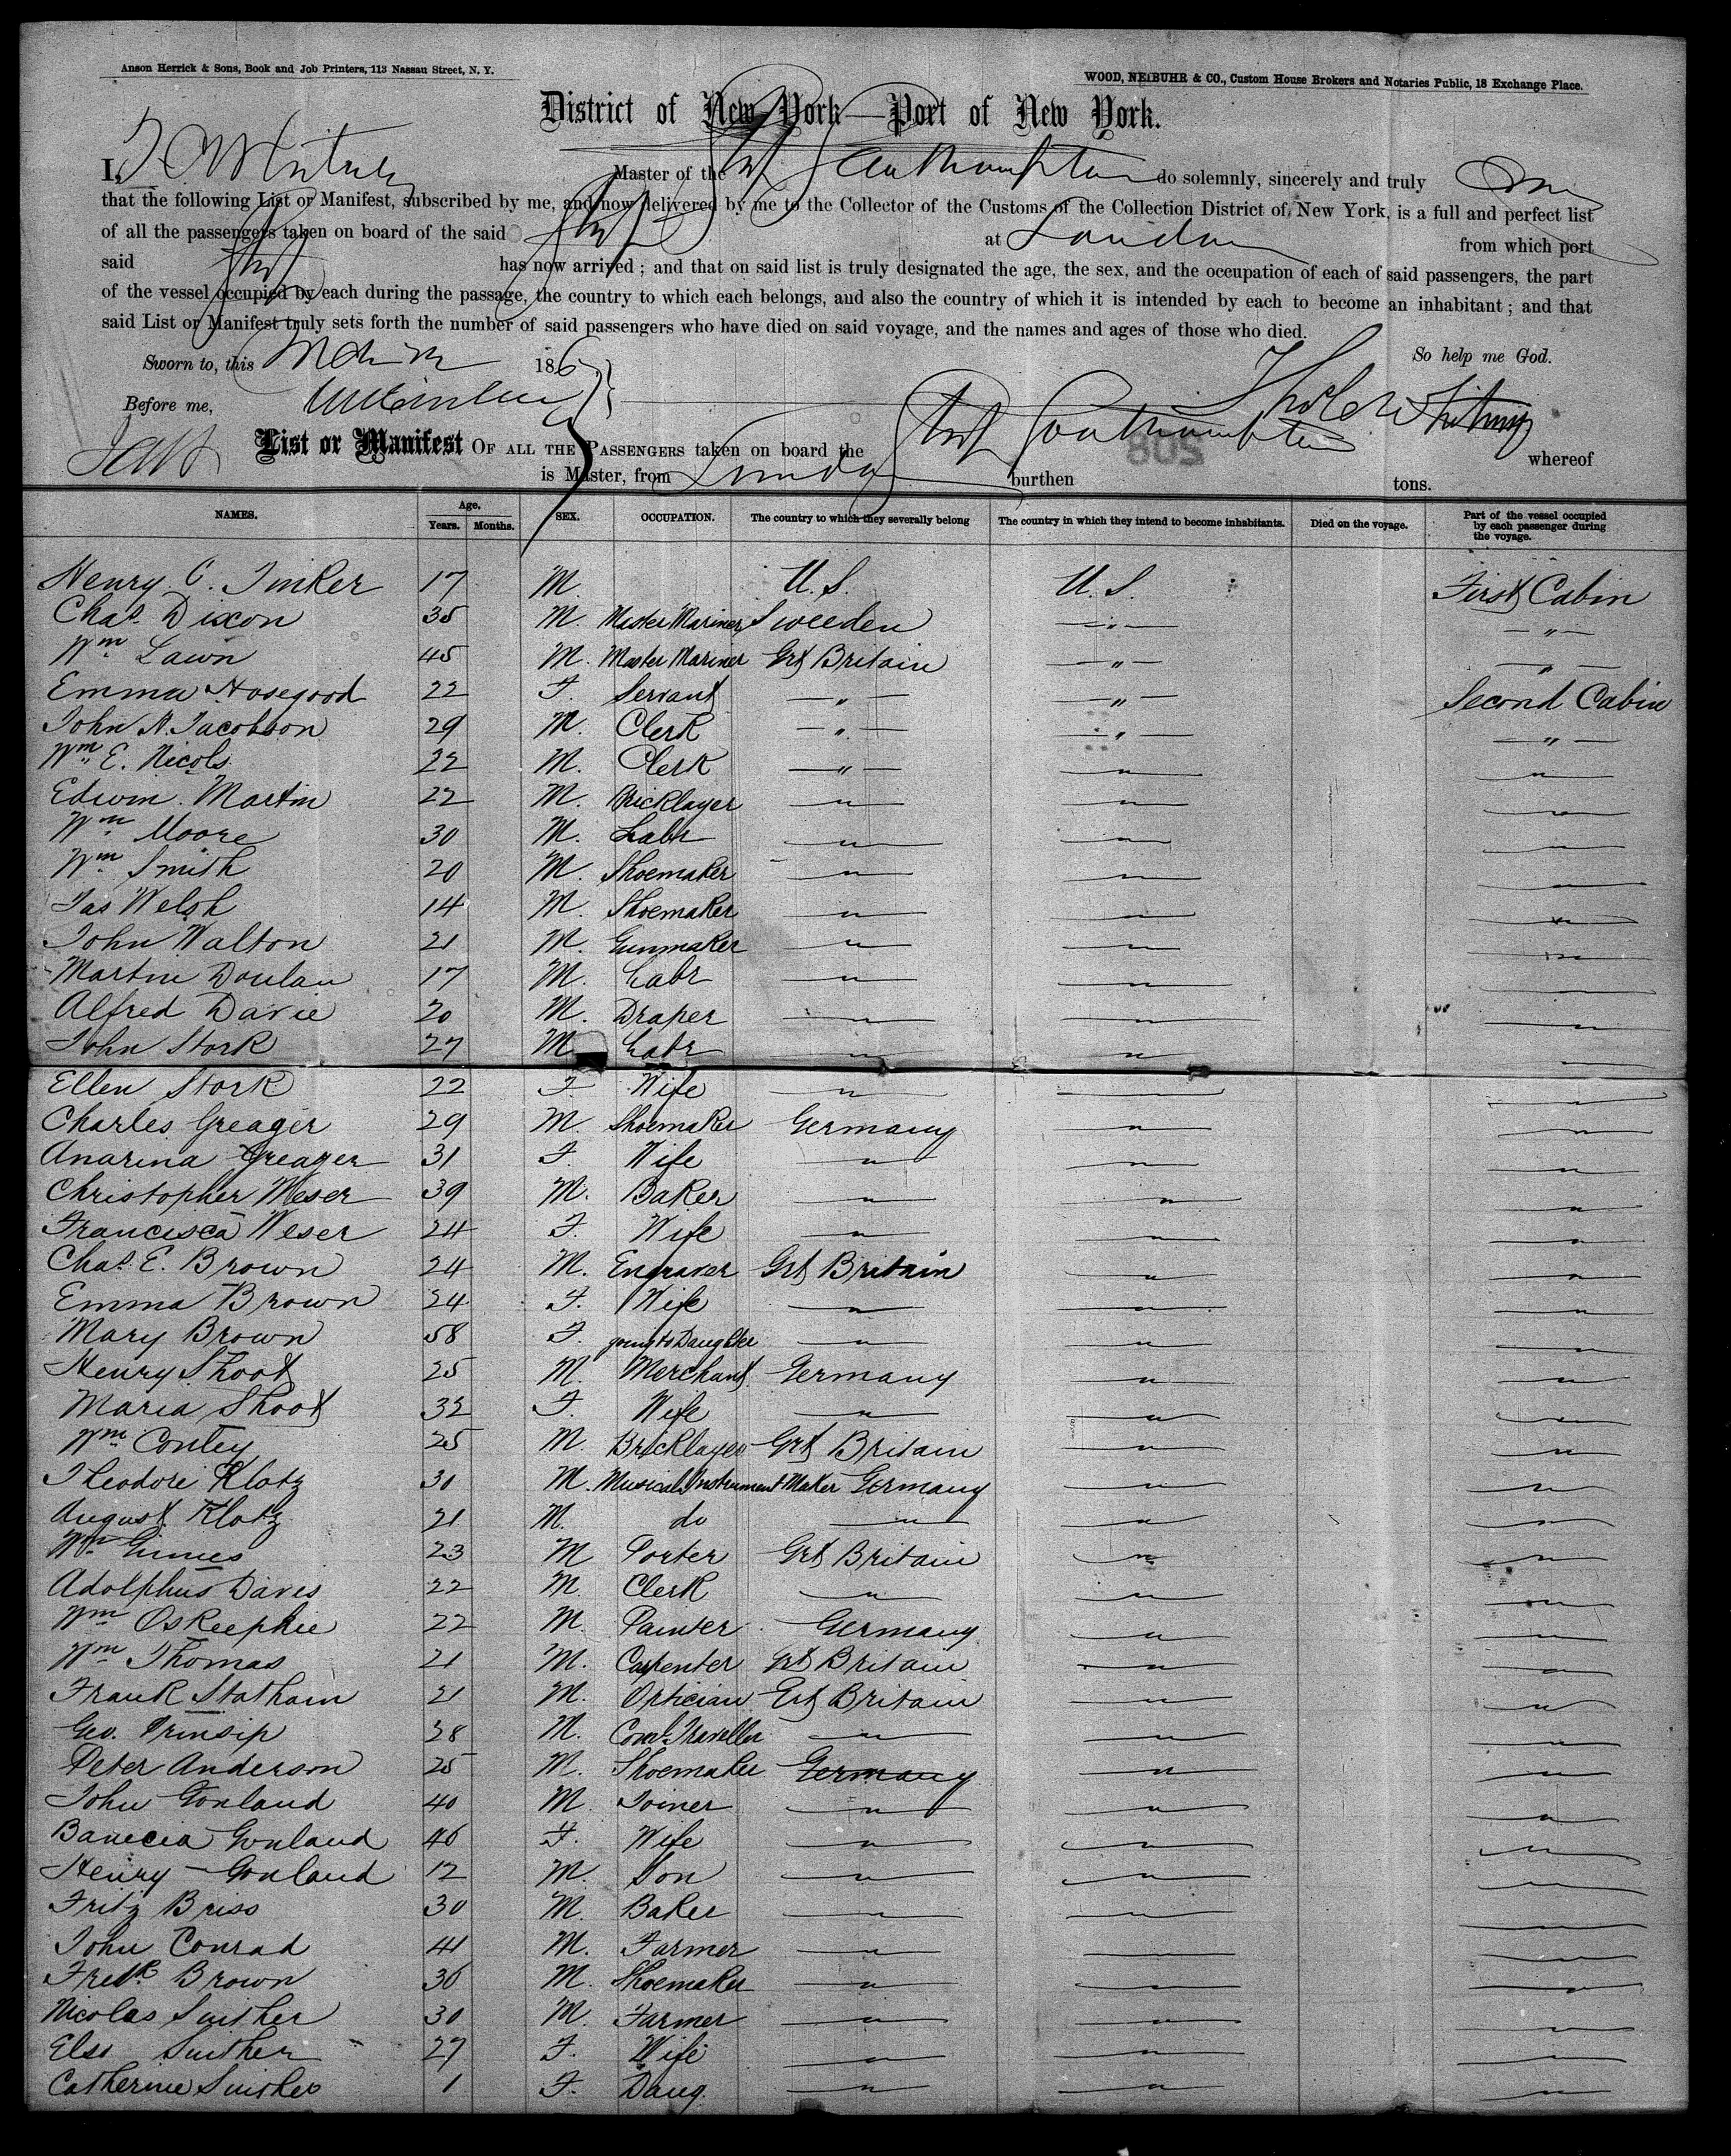 Anson Herrick & Sons, Book and Job Printers, 113 Nassau Street, N. Y.
WOOD, NEIBUHR & CO., Custom House Brokers and Notaries Public, 18 Exchange Place.
District of New York—Port of New York.
I, Master of the Ship Southampton do solemnly, sincerely and truly
that the following List or Manifest, subscribed by me, and now delivered by me to the Collector of the Customs of the Collection District of New York, is a full and perfect list
of all the passengers taken on board of the said Ship at London from which port
said Ship has now arrived; and that on said list is truly designated the age, the sex, and the occupation of each of said passengers, the part
of the vessel occupied by each during the passage, the country to which each belongs, and also the country of which it is intended by each to become an inhabitant; and that
said List or Manifest truly sets forth the number of said passengers who have died on said voyage, and the names and ages of those who died.
Sworn to, this 186 So help me God.
Before me, Whitney
List or Manifest OF ALL THE PASSENGERS taken on board the Ship Southampton whereof
805
is Master, from London burthen tons.
NAMES. Age. Years. Months. SEX. OCCUPATION. The country to which they severally belong The country in which they intend to become inhabitants. Died on the voyage. Part of the vessel occupied by each passenger during the voyage.
Henry C. Tinker 17 M. U. S. U. S. First Cabin
Chas. Dixon 35 M. Master Mariner Sweeden " "
Wm Lawn 45 M. Master Mariner Grt Britain " "
Emma Hosegood 22 F. Servant " " Second Cabin
John N. Jacobson 29 M. Clerk " " "
Wm E. Nicols 22 M. Clerk " " "
Edwin Martin 22 M. Bricklayer " " "
Wm Moore 30 M. Labr " " "
Wm Smith 20 M. Shoemaker " " "
Jas Welsh 14 M. Shoemaker " " "
John Walton 21 M. Gunmaker " " "
Martin Doulan 17 M. Labr " " "
Alfred Davie 20 M. Draper " " "
John Stork 27 M. Labr " " "
Ellen Stork 22 F. Wife " " "
Charles Greager 29 M. Shoemaker Germany " "
Anarina Greager 31 F. Wife " " "
Christopher Weser 39 M. Baker " " "
Francisca Weser 24 F. Wife " " "
Chas. E. Brown 24 M. Engraver Grt Britain " "
Emma Brown 24 F. Wife " " "
Mary Brown 58 F. going to Daughter " " "
Henry Shoot 25 M. Merchant Germany " "
Maria Shoot 32 F. Wife " " "
Wm Conley 25 M. Bricklayer Grt Britain " "
Theodore Klotz 30 M. Musical Instrument Maker Germany " "
August Klotz 21 M. do " " "
Wm 23 M Porter Grt Britain " "
Adolphus Daves 22 M. Clerk " " "
Wm OsKeephie 22 M. Painter Germany " "
Wm Thomas 21 M. Carpenter Grt Britain " "
Frank Statham 21 M. Optician Grt Britain " "
Geo. Prinsip 28 M. Coml Traveller " " "
Peter Anderson 25 M. Shoemaker Germany " "
John Gonland 40 M Joiner " " "
Banecia Gonland 46 F. Wife " " "
Henry Gonland 12 M. Son " " "
Fritz Briss 30 M. Baker " " "
John Conrad 41 M. Farmer " " "
Fredk Brown 36 M. Shoemaker " " "
Nicolas Suither 30 M. Farmer " " "
Elso Suither 27 F. Wife " " "
Catherine Suither 1 F. Daug. " " "